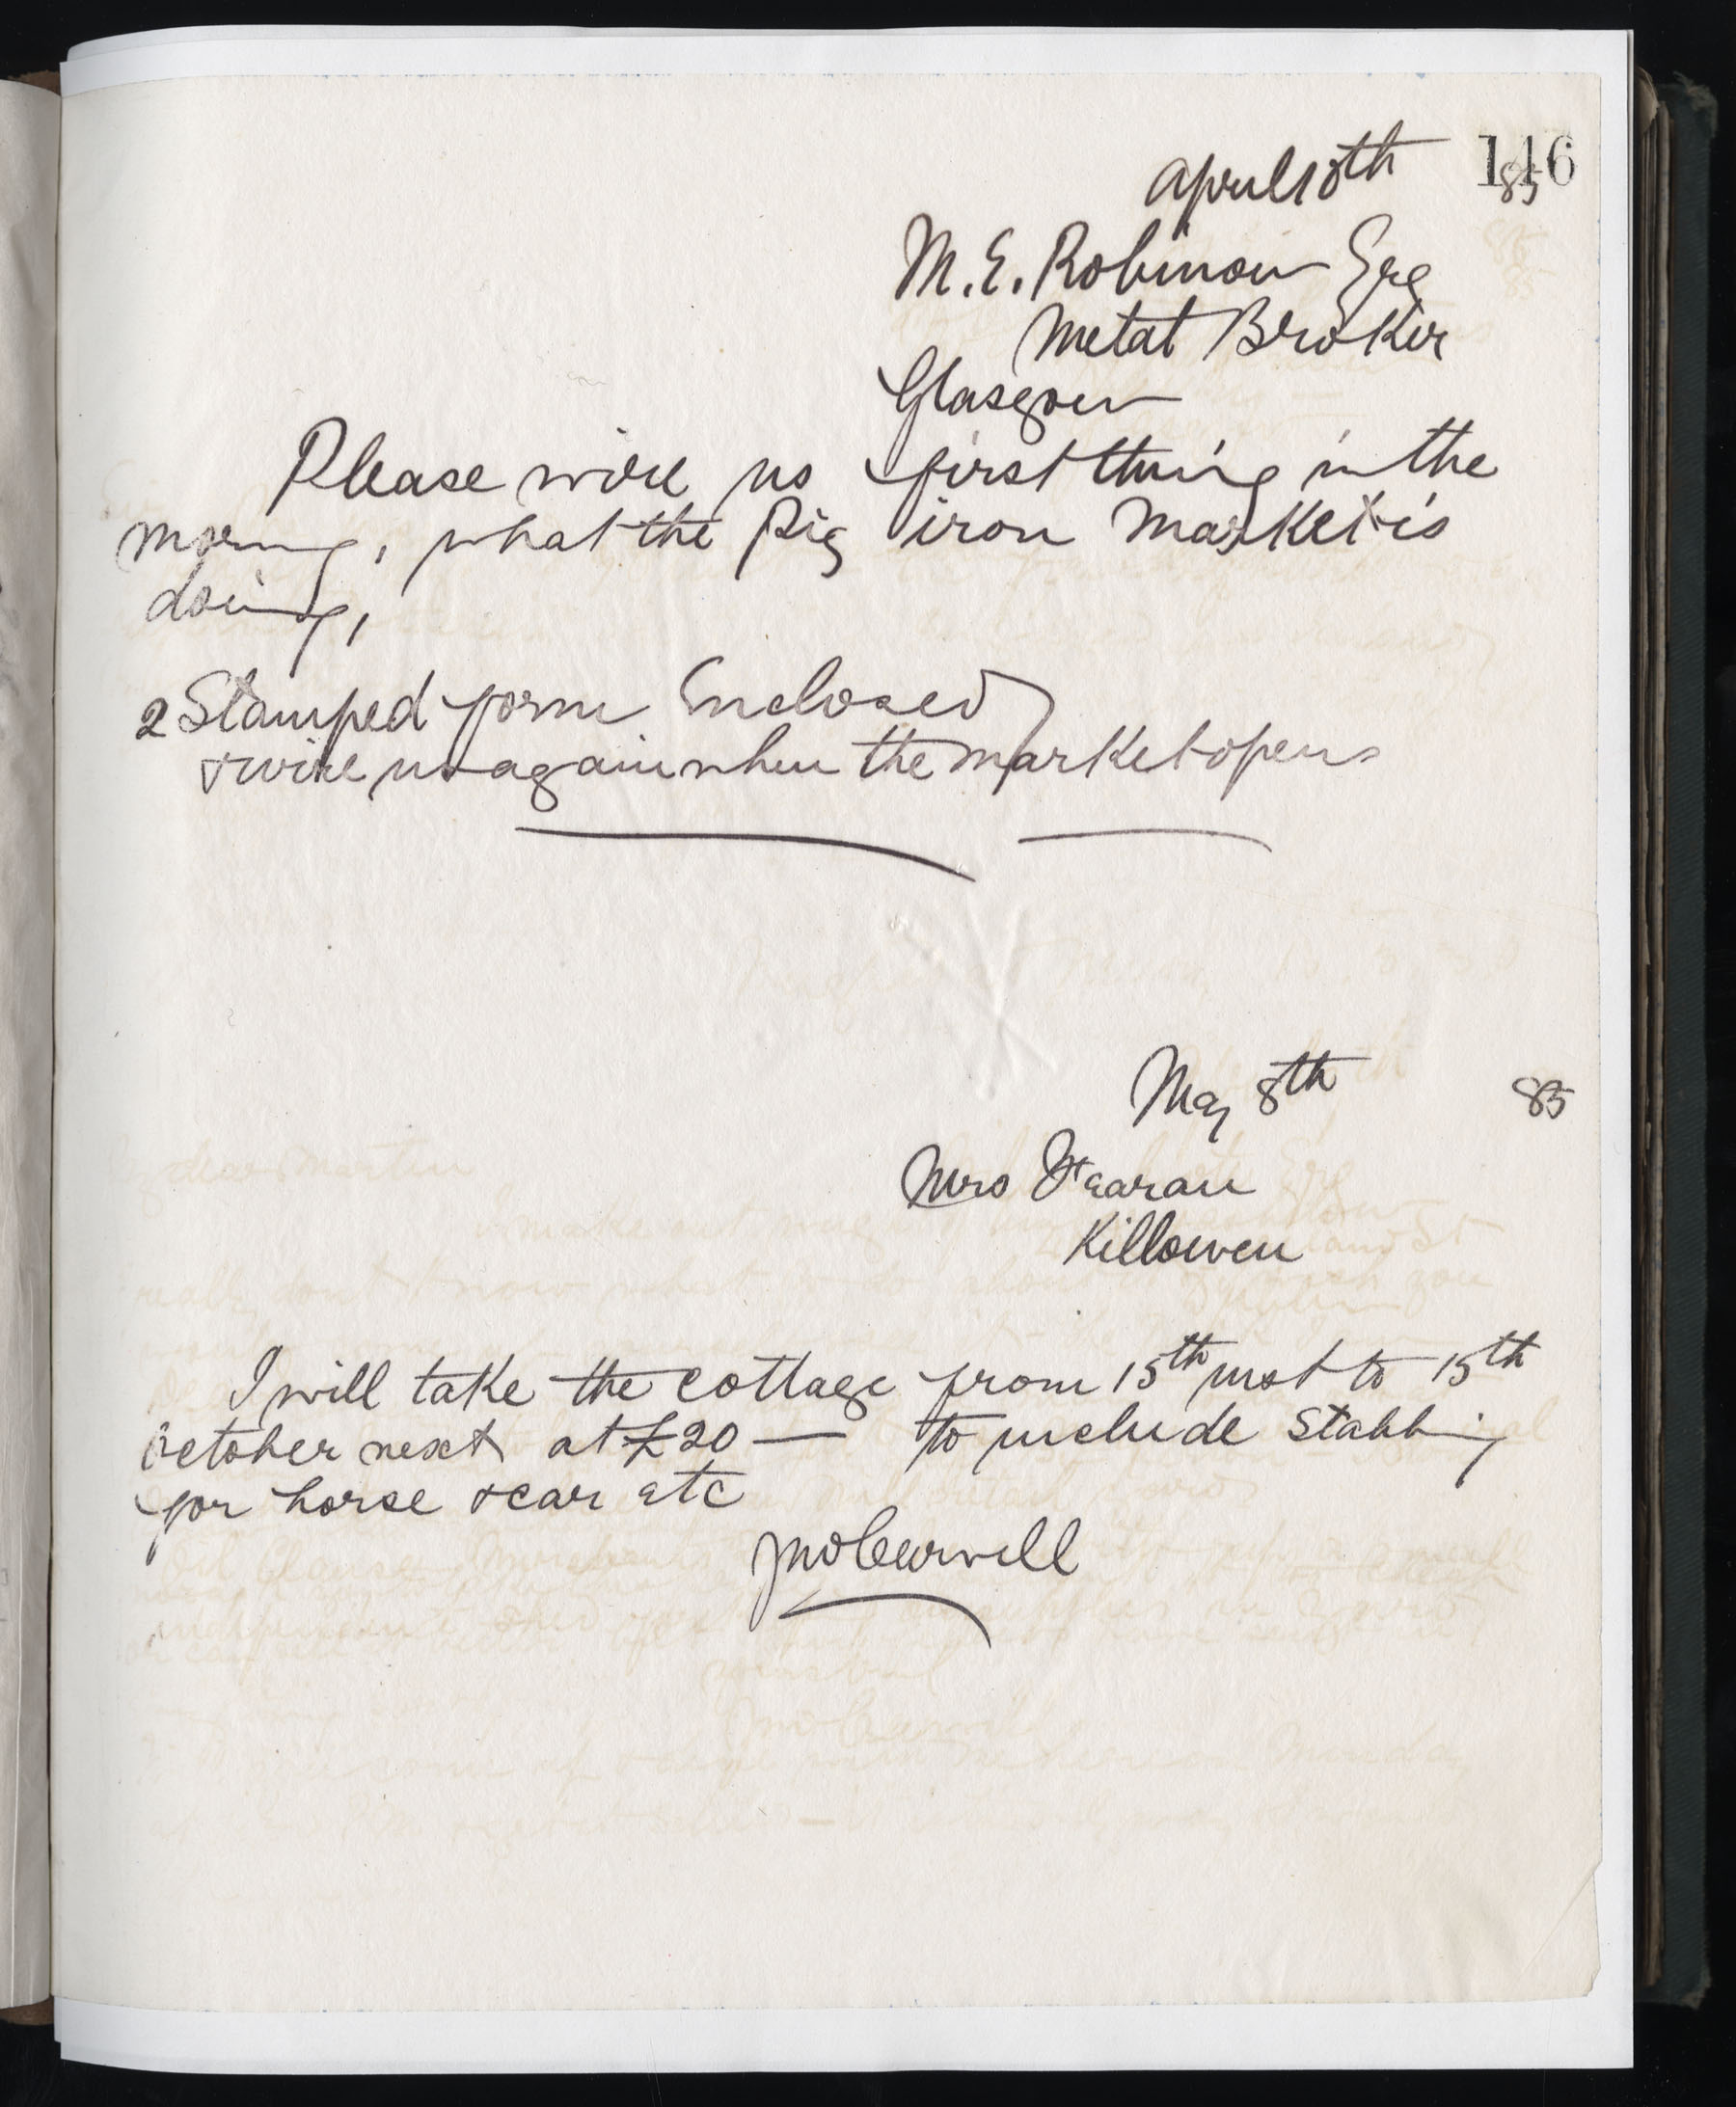 146
April 18th 85
M. E. Robinow Esq
Metal Broker
Glasgow
Please wire us first thing in the
morning, what the Pig iron Market is
doing,
2 Stamped form Enclosed
& wire us again when the market opens
May 8th 85
Mrs
Killowen
I will take the cottage from 15th inst to 15th
October next at £20 — to include Stabling
for horse & car etc
Jno Curwell